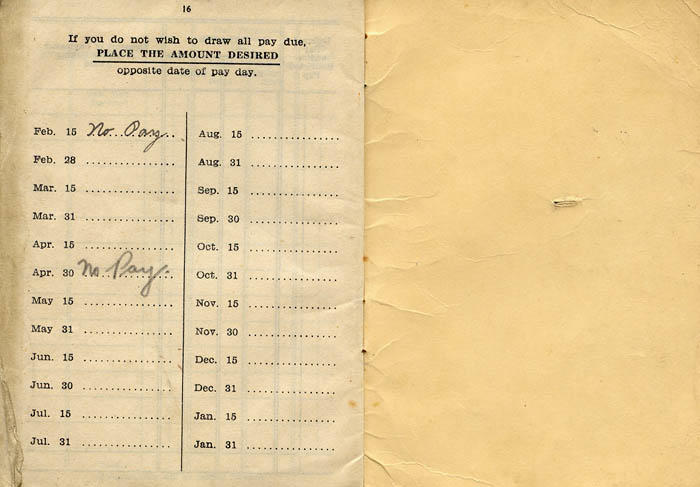 16
If you do not wish to draw all pay due,
PLACE THE AMOUNT DESIRED
opposite date of pay day.
Feb. 15 No Pay
Feb. 28 ................
Mar. 15 ................
Mar. 31 ................
Apr. 15 ................
Apr. 30 No Pay
May 15 ................
May 31 ................
Jun. 15 ................
Jun. 30 ................
Jul. 15 ................
Jul. 31 ................
Aug. 15 ................
Aug. 31 ................
Sep. 15 ................
Sep. 30 ................
Oct. 15 ................
Oct. 31 ................
Nov. 15 ................
Nov. 30 ................
Dec. 15 ................
Dec. 31 ................
Jan. 15 ................
Jan. 31 ................